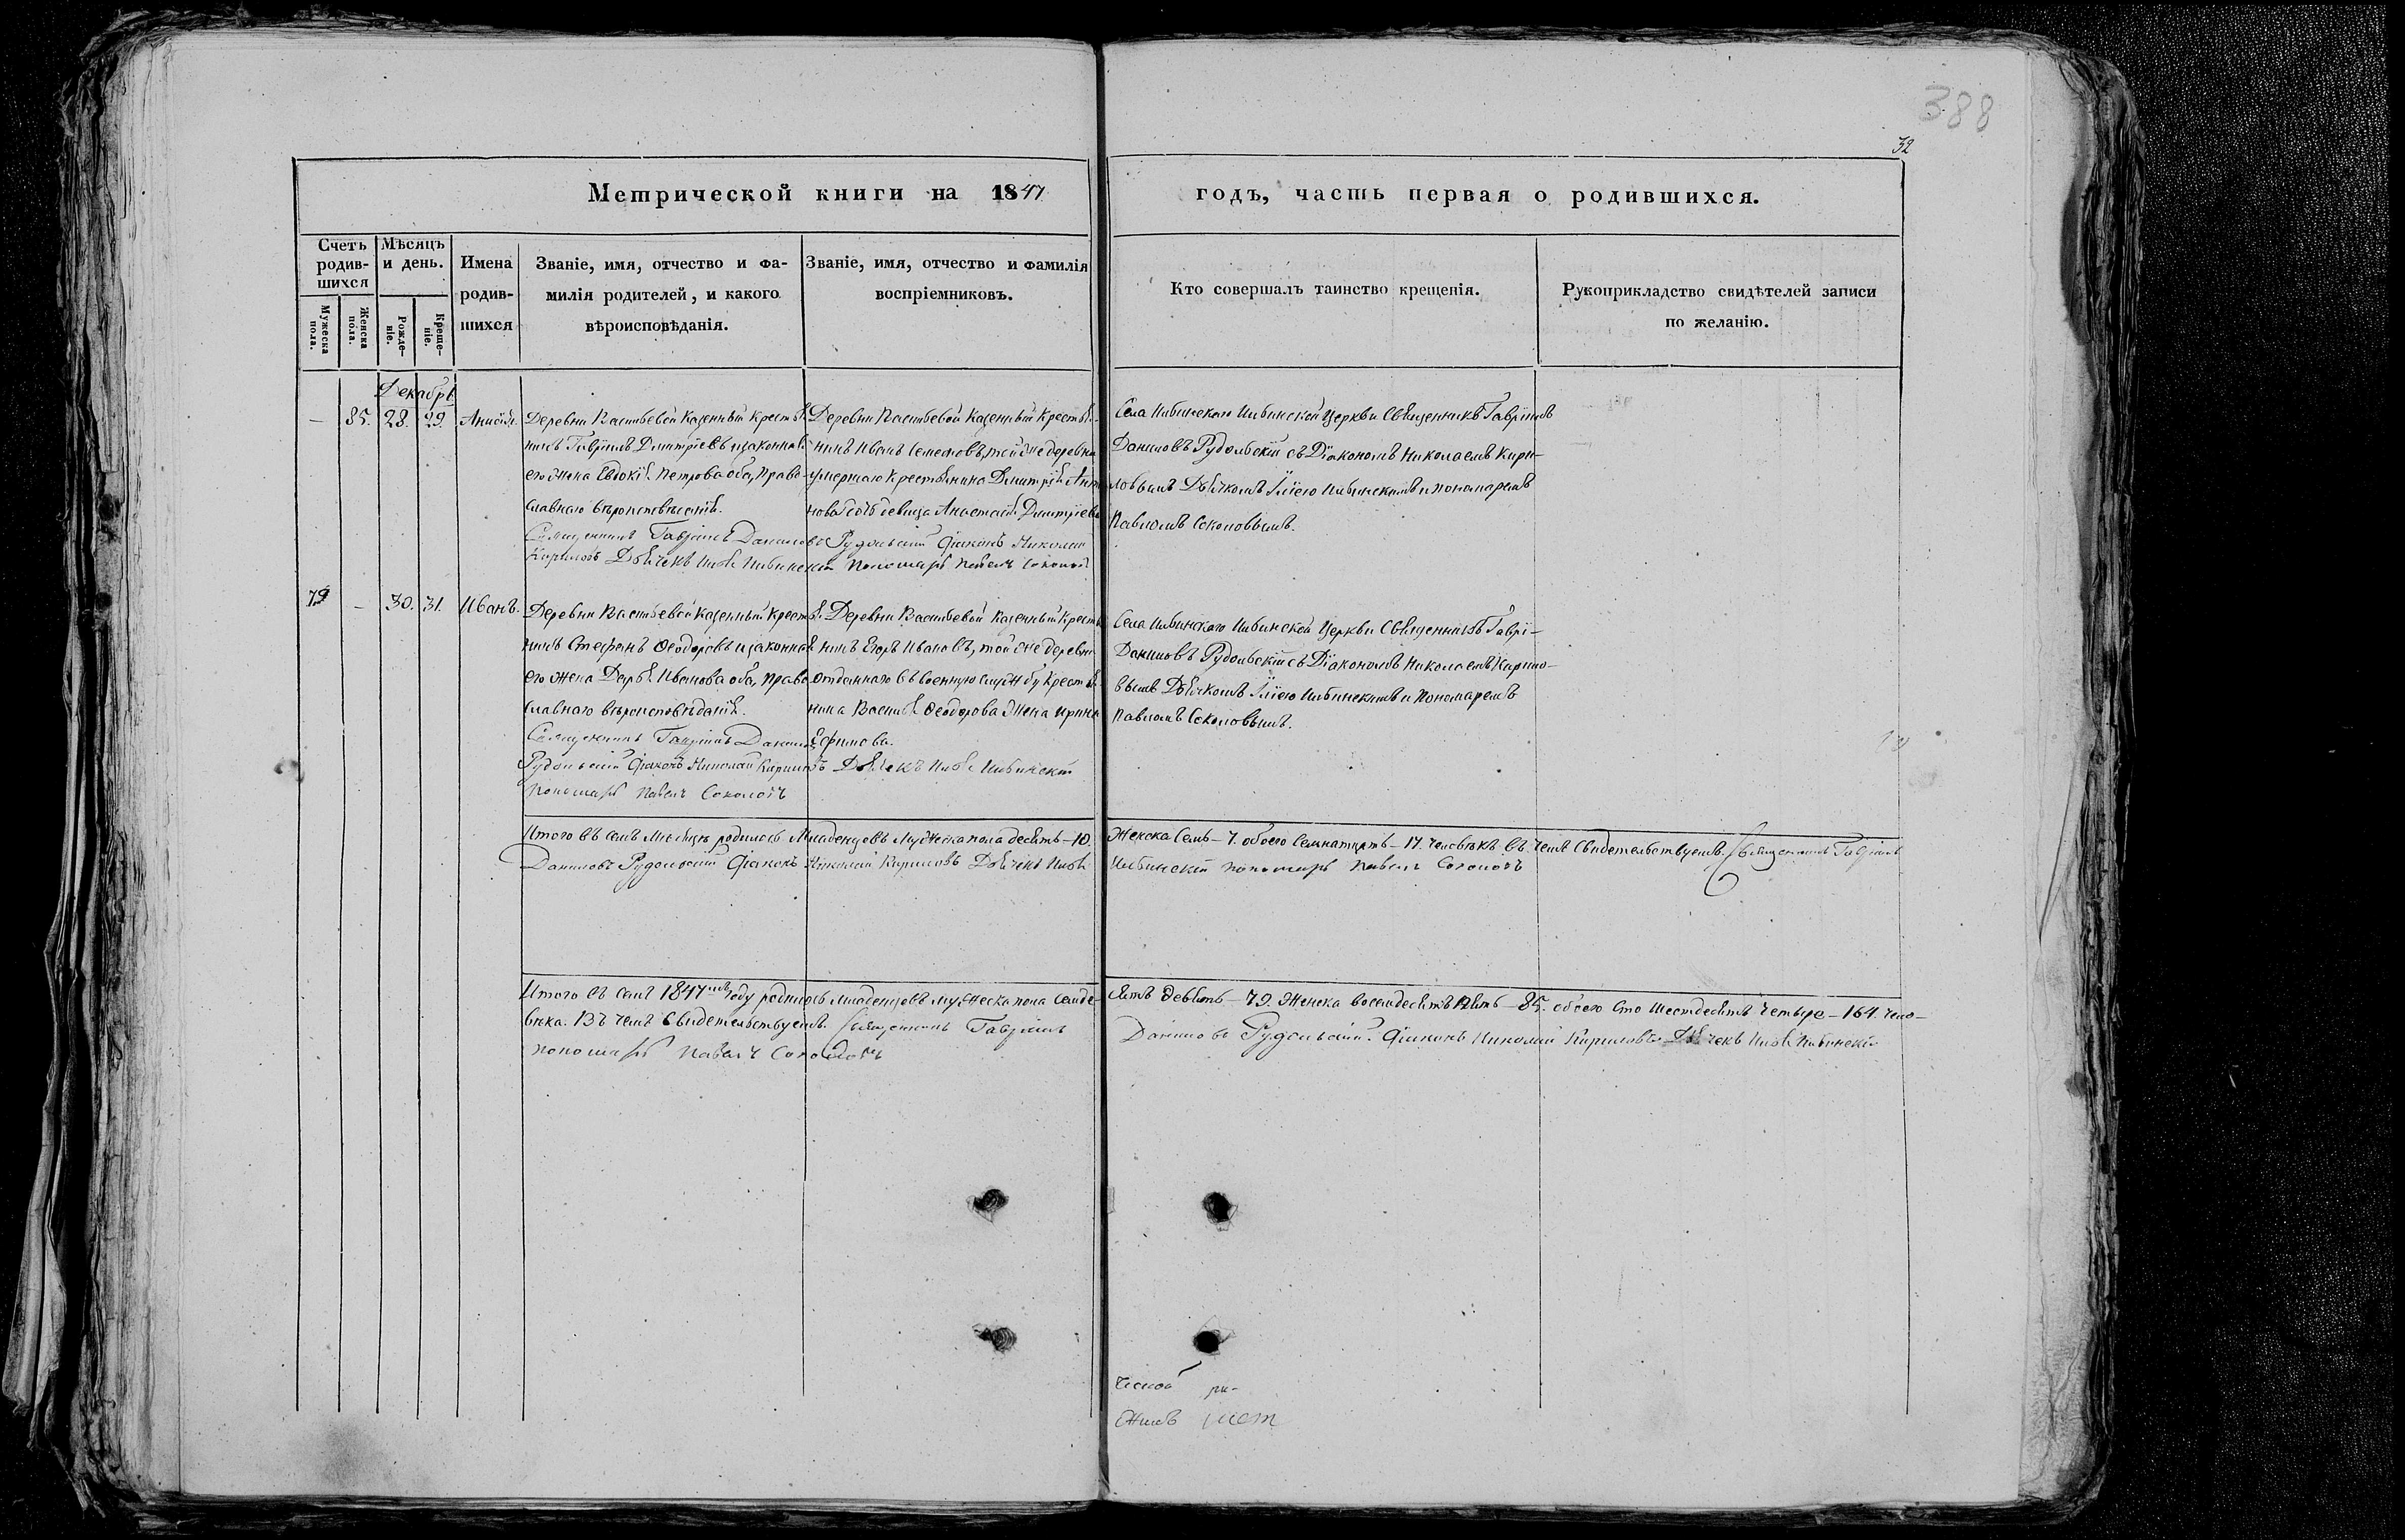 388
32
Метрической книги на 1847
годъ, часть первая о родившихся.
Счетъ родив-шихся
Мѣсяцъ и день.
Имена родив-шихся
Званіе, имя, отчество и фа-
милія родителей, и какого
вѣроисповѣданія.
Званіе, имя, отчество и фамилія
воспріемниковъ.
Кто совершалъ таинство крещенія.
Рукоприкладство свидѣтелей записи
по желанію.
Мужеска пола.
Женска пола.
Рожде-ніе.
Креще-ніе.
Декабрь
— 85. 28. 29. Анисія.
Деревни Васильевой казенный крестья-
нинъ Гавріилъ Димитріевъ и законная
его жена Евдокія Петрова оба, право-
славнаго
Священникъ Гавріилъ Даниловъ Рудольскій Діаконъ Николай
Кириловъ Дьячекъ Илья пономарь Павелъ Соколовъ
Деревни Васильевой казенный крестья-
нинъ Иванъ Семеновъ, той же деревни
умершаго крестьянина Димитрія
нова дочь девица Анастасія Димитріева
Села Церкви Священникъ Гавріилъ
Даниловъ Рудольскій съ Діакономъ Николаемъ Кири-
ловымъ Дьячкомъ Іліею и пономаремъ
Павломъ Соколовымъ.
79 — 30. 31. Иванъ.
Деревни Васильевой казенный крестья-
нинъ Стефанъ Ѳеодоровъ и законная
его жена Дарья Иванова оба, право-
славнаго вѣроисповѣданія.
Священникъ Гавріилъ Даниловъ
Рудольскій Діаконъ Николай Кириловъ Дьячекъ Илья
пономарь Павелъ Соколовъ
Деревни Васильевой казенный крестья-
нинъ Егоръ Ивановъ, той же деревни
отданнаго въ военную службу крестья-
нина Василья Ѳеодорова жена Ирина
Ефимова.
Села Церкви Священникъ Гаврі-
Даниловъ Рудольскій съ Діакономъ Николаемъ Кирило-
вымъ Дьячкомъ Іліею и пономаремъ
Павломъ Соколовымъ.
Итого въ семъ месяцѣ родилось младенцовъ мужеска пола десять — 10. женска семь — 7. обоего семнатцать — 17. человѣкъ въ чемъ свидетельствуемъ. Священникъ Гавріилъ
Даниловъ Рудольскій Діаконъ Николай Кириловъ Дьячекъ Илья пономарь Павелъ Соколовъ
Итого въ семъ 1847мъ году родилось младенцовъ мужеска пола семде-сятъ девять — 79. женска восемдесятъ пять — 85. обоего сто шестдесятъ четыре — 164. чело-
вѣка. Въ чемъ свидетельствуемъ. Священникъ Гавріилъ Даниловъ Рудольскій. Діаконъ Николай Кириловъ Дьячекъ Илья
пономарь Павелъ Соколовъ